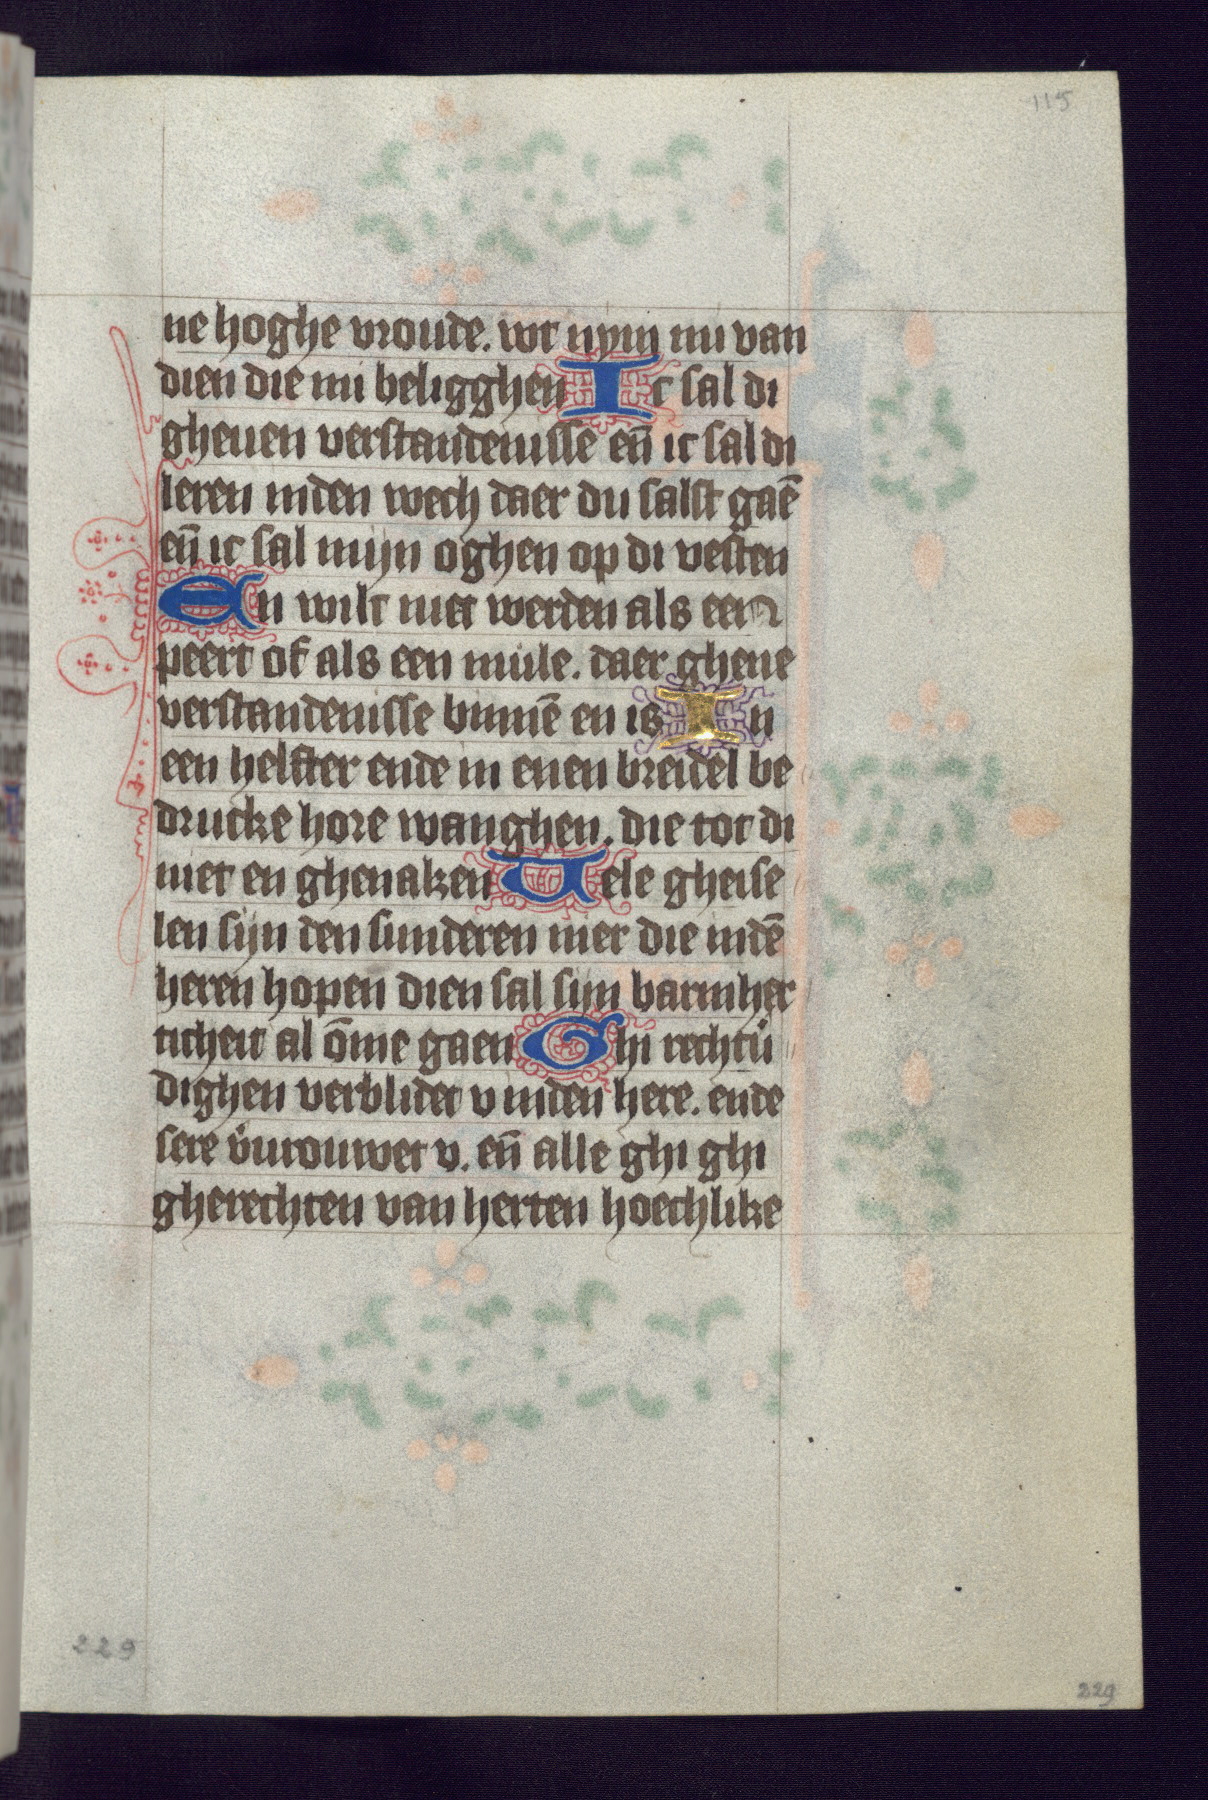 115
ne hoghe vroude. wt nym nu van
dien die mi beligghen Ic sal di
gheuen verstandenisse en̄ ic sal di
leren inden wech daer du salst gaē
en̄ ic sal mijn oghen op di vesten
En wilt niet werden als een
peert of als een mule. daer gheue
verstandenisse binnē en is In
een helfter ende in enen breidel be
drucke hore wanghen. die tot di
niet en ghenaken Uele gheise
len sijn den sunderen mer die indē
heren hopen dien sal sijn barmher
ticheit al ōme gaen Ghi rechtū
dighen verblidet v inden here. ende
sere v̄urouwet v. en̄ alle ghi ghi
gherechten van herten hoechlike
229
229